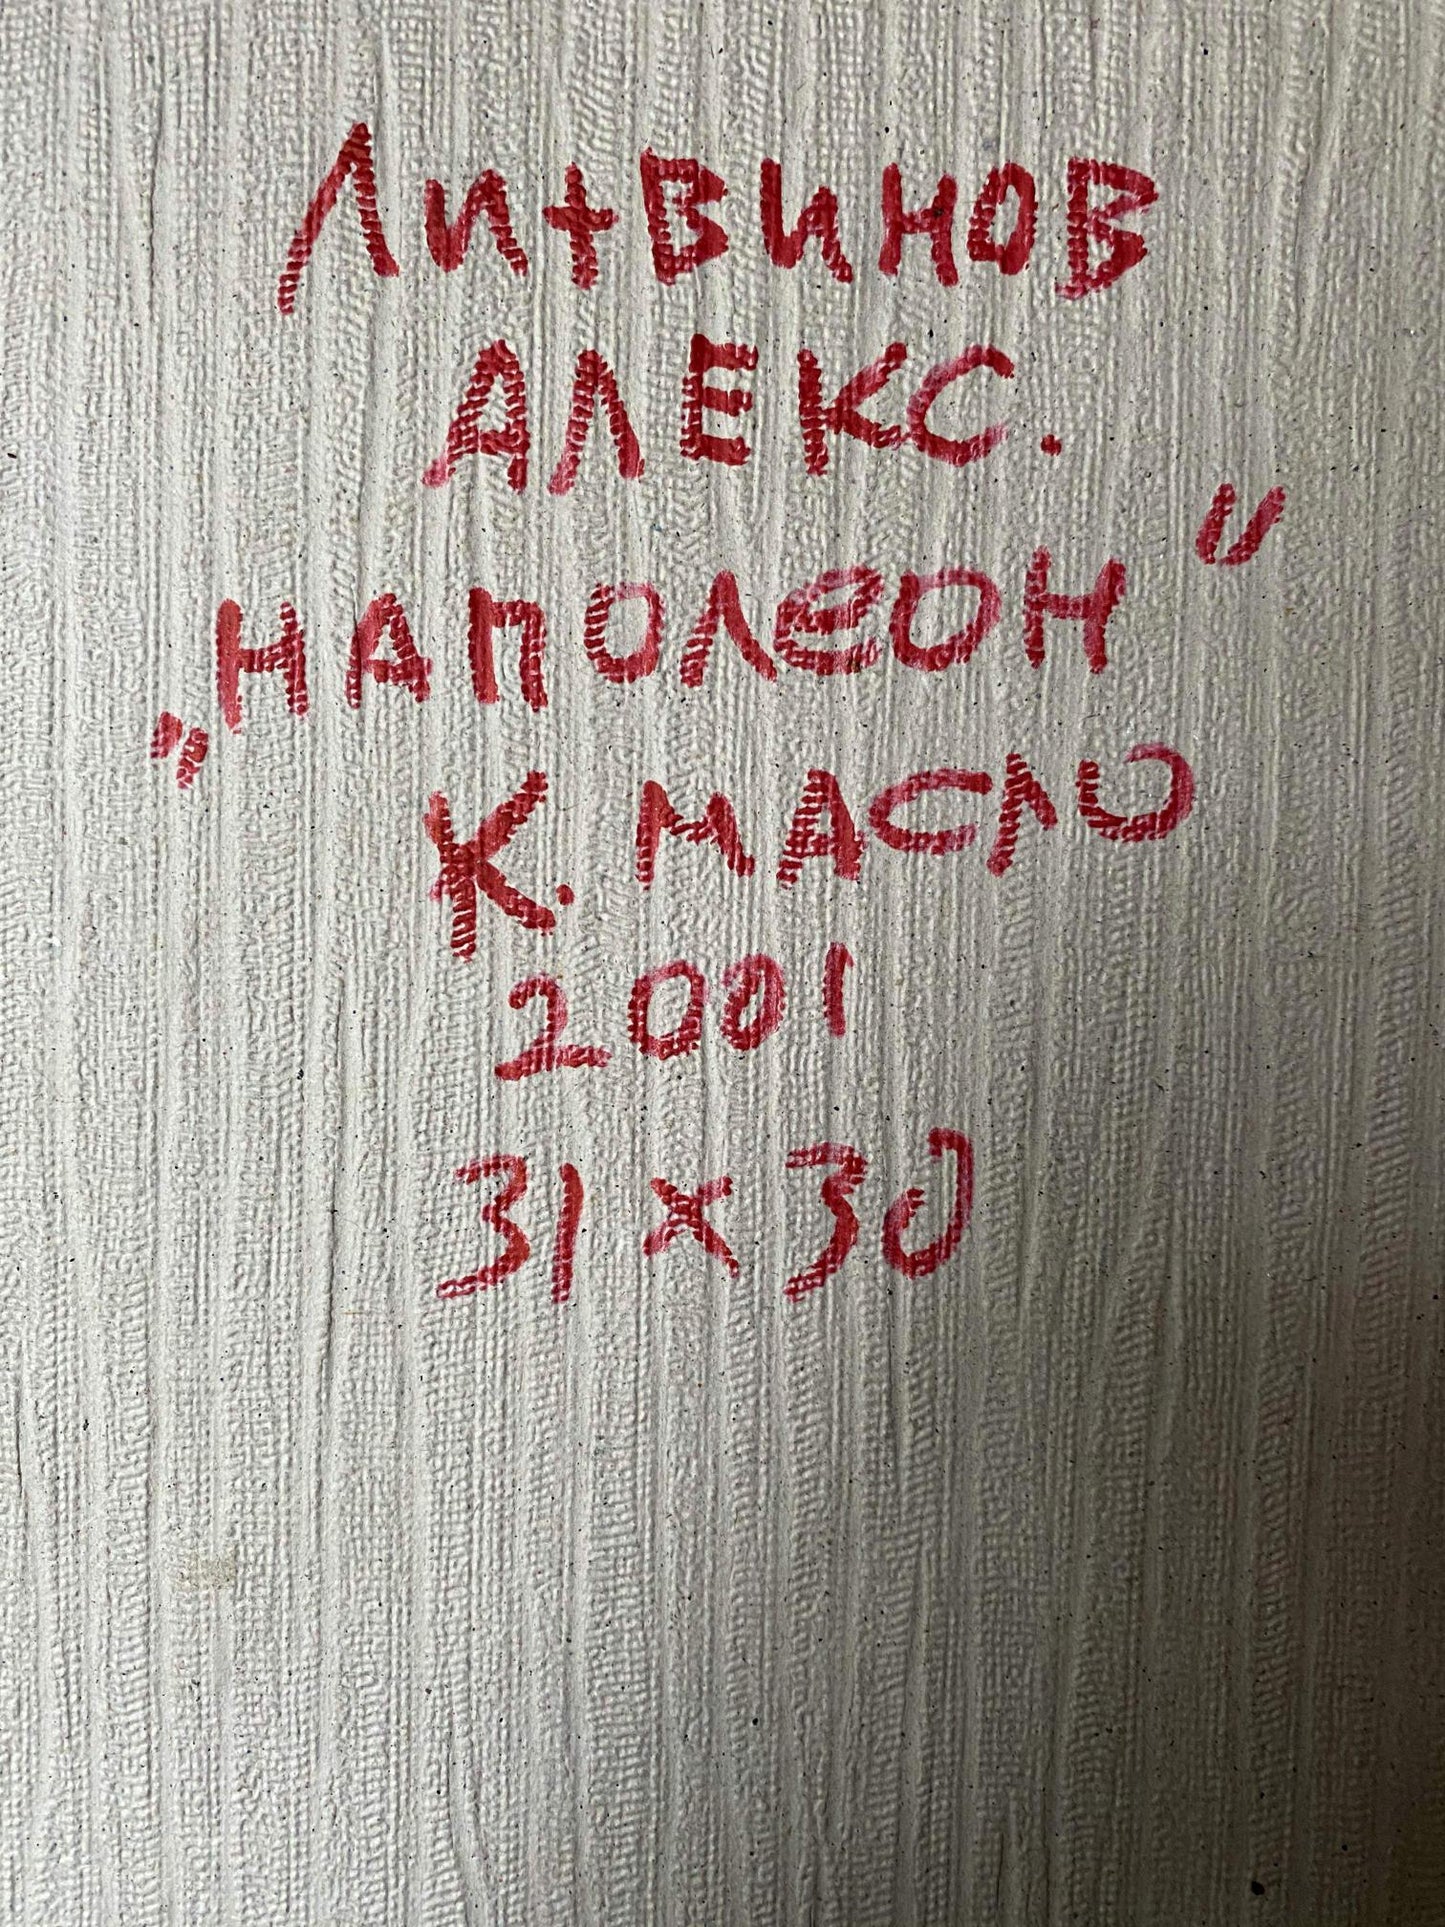 Литвинов
АЛЕКС.
„НАПОЛеОН"
К. МАСЛО
2001
31 x 30